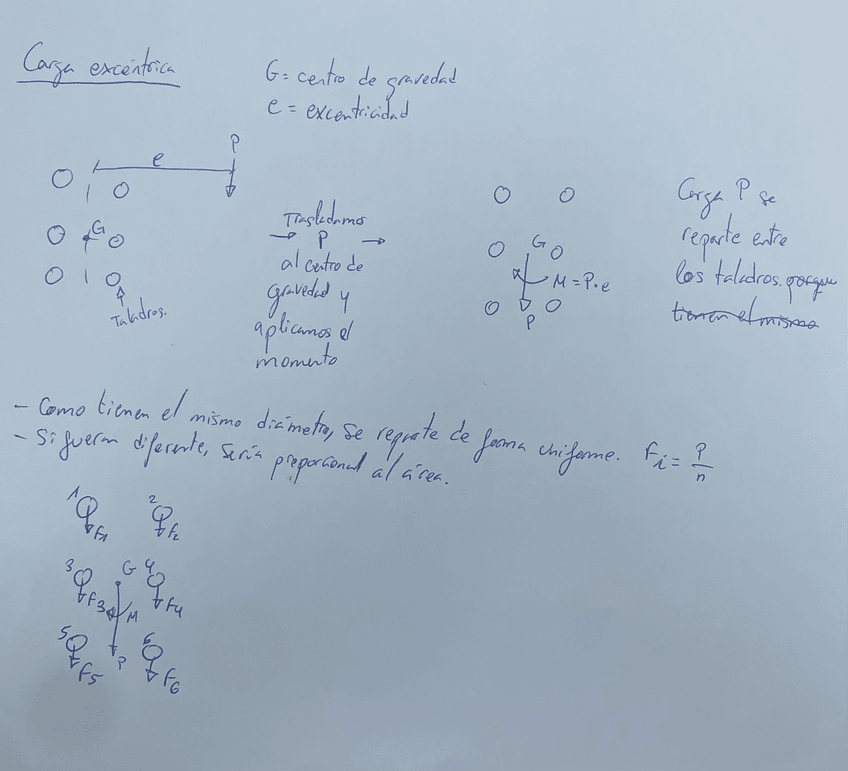 Carga excéntrica
G = centro de gravedad
e = excentricidad
P
e
G
Taladros.
Trasladamos
P
al centro de
gravedad y
aplicamos el
momento
G
M = P·e
P
Carga P se
reparte entre
los taladros. porque
tienen el mismo
- Como tienen el mismo diámetro, se reparte de forma uniforme. Fi = P/n
- Si fueran diferente, sería proporcional al área.
1
F1
2
F2
3
F3
G
4
F4
M
5
F5
P
6
F6